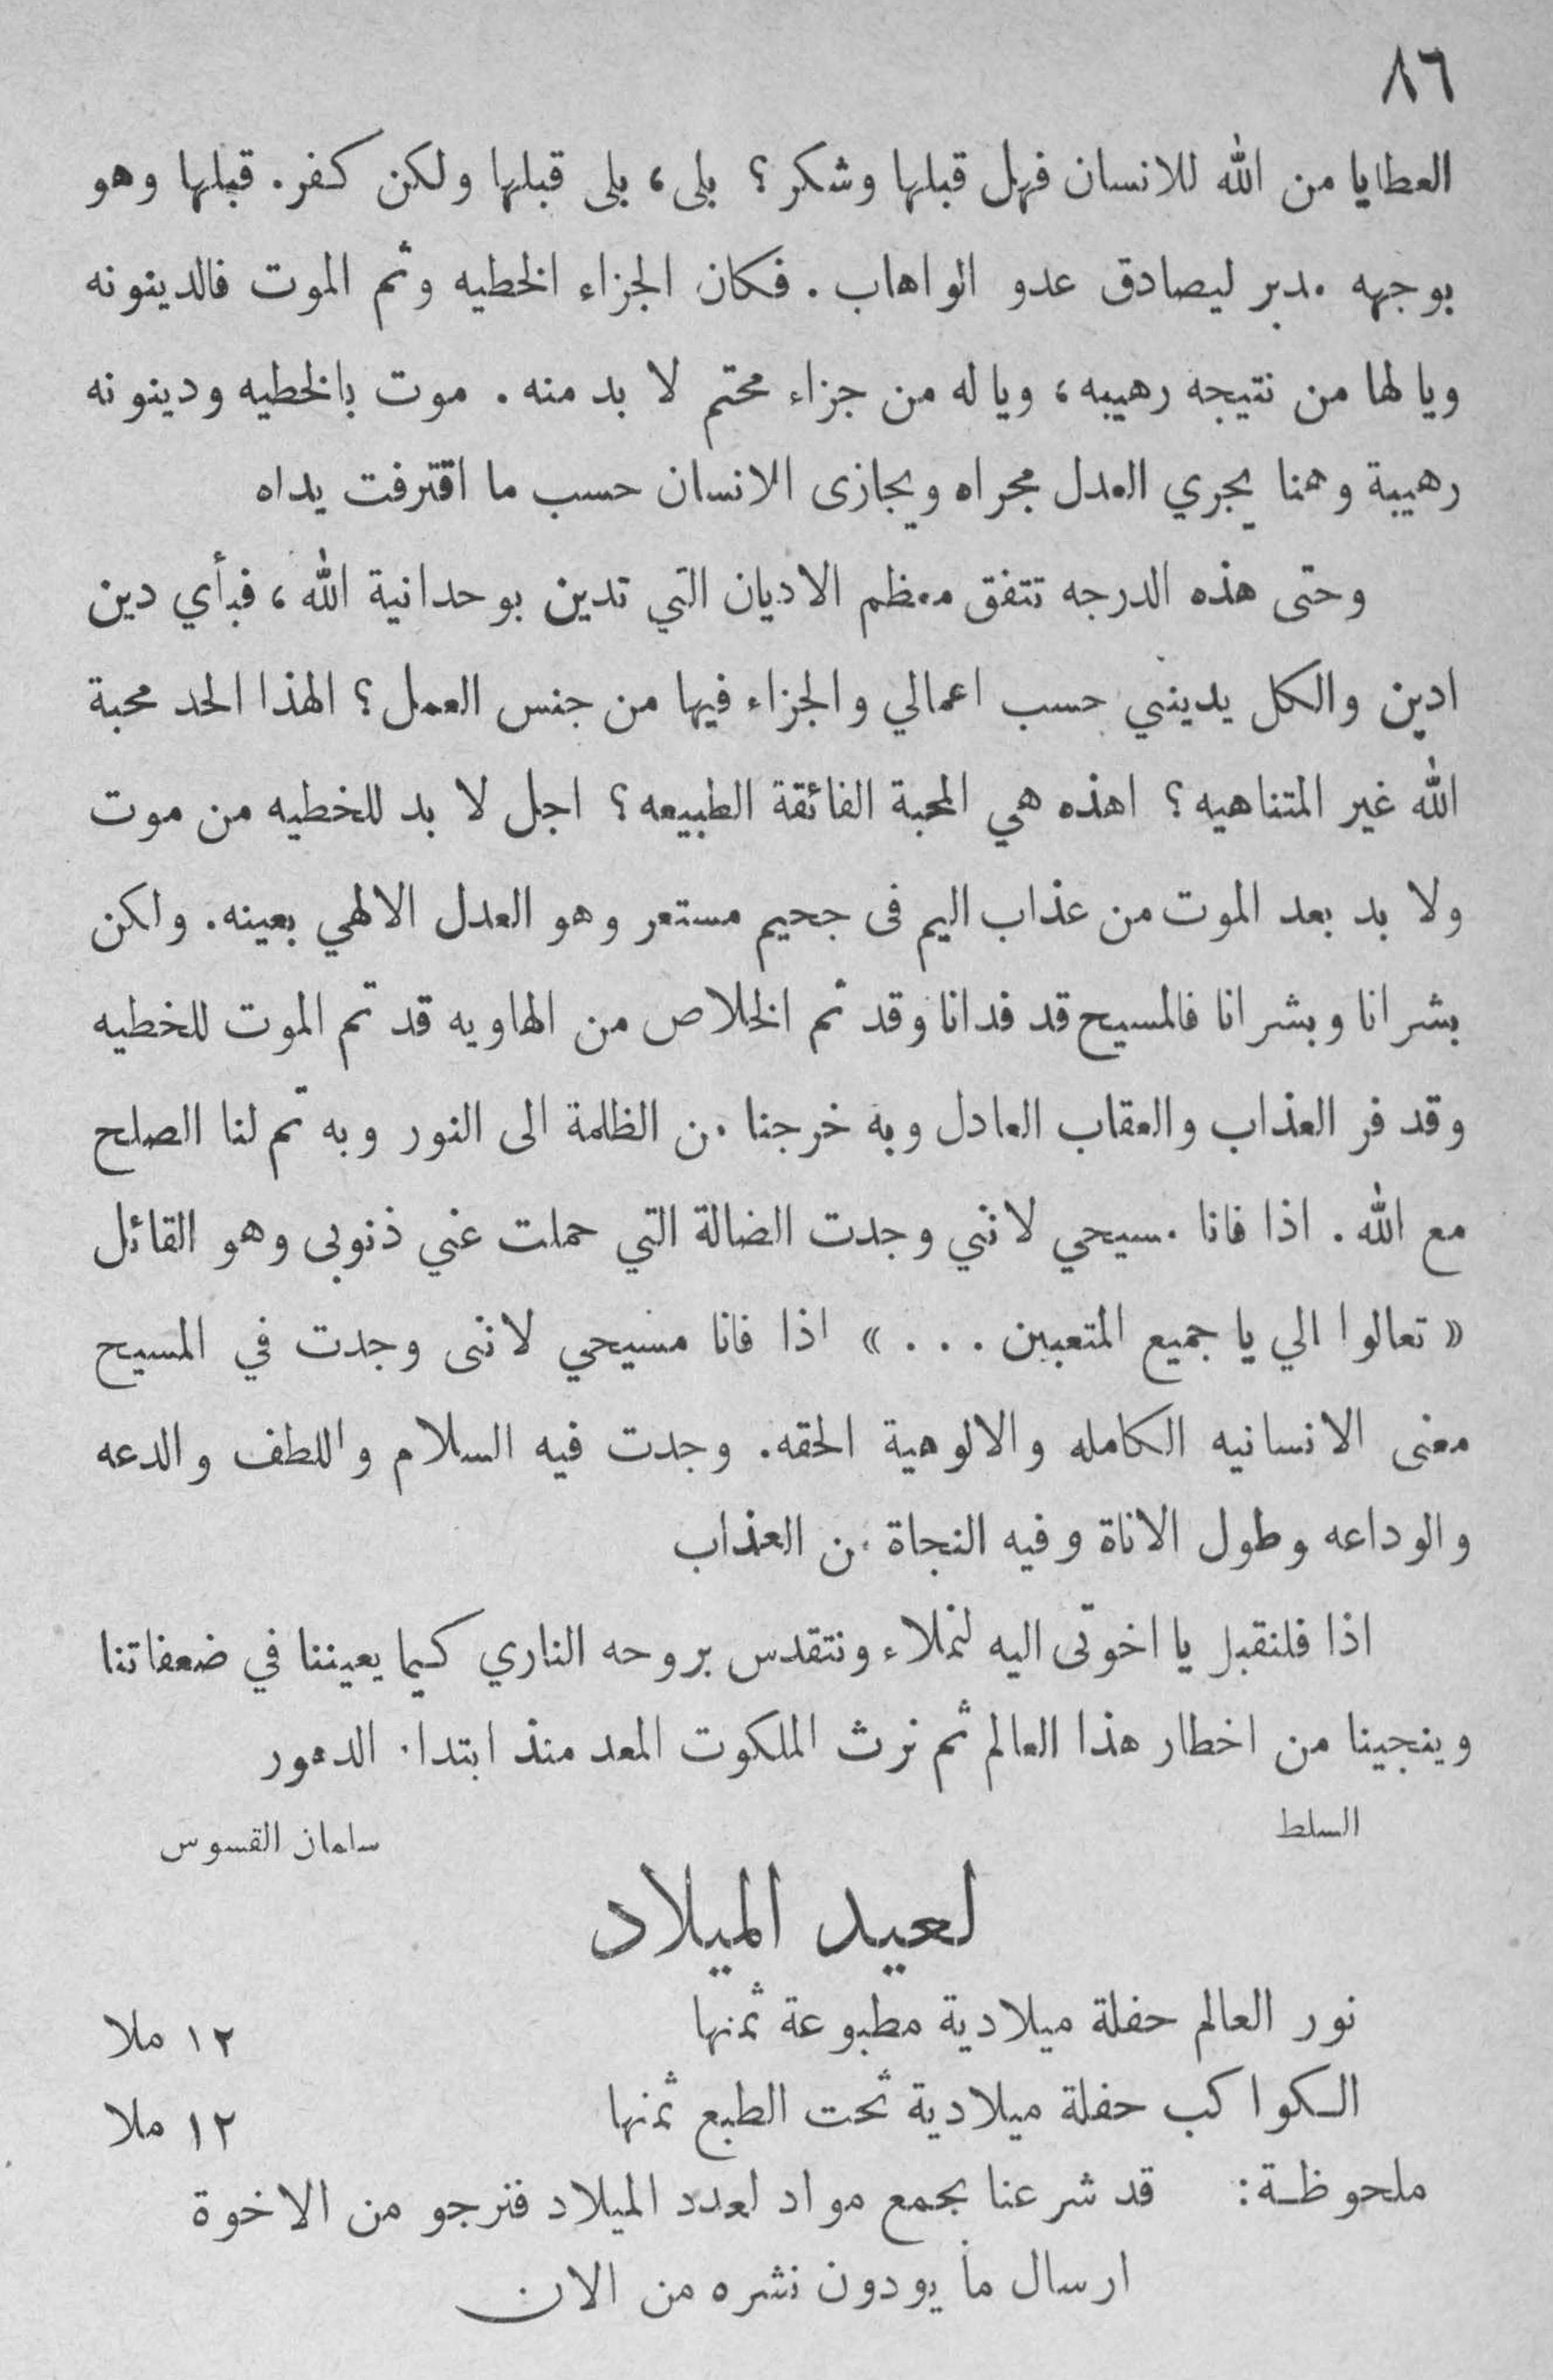 ٨٦
العطايا من الله للانسان فهل قبلها وشكر ؟ بلى ، بلى قبلها ولكن كفر . قبلها وهو
بوجهه مدبر ليصادق عدو الواهاب . فكان الجزاء الخطيه وثم الموت فالدينونه
ويا لها من نتيجه رهيبه ، ويا له من جزاء محتم لا بد منه . موت بالخطيه ودينونه
رهيبة وهنا يجري العدل مجراه ويجازى الانسان حسب ما اقترفت يداه
وحتى هذه الدرجه تتفق معظم الاديان التي تدين بوحدانية الله ، فبأي دين
ادين والكل يدينني حسب اعمالي والجزاء فيها من جنس العمل ؟ الهذا الحد محبة
الله غير المتناهيه ؟ اهذه هي المحبة الفائقة الطبيعه ؟ اجل لا بد للخطيه من موت
ولا بد بعد الموت من عذاب اليم فى جحيم مستعر وهو العدل الالهي بعينه . ولكن
بشرانا وبشرانا فالمسيح قد فدانا وقد تم الخلاص من الهاويه قد تم الموت للخطيه
وقد فر العذاب والعقاب العادل وبه خرجنا من الظلمة الى النور وبه تم لنا الصلح
مع الله . اذا فانا مسيحي لانني وجدت الضالة التي حملت عني ذنوبى وهو القائل
« تعالوا الي يا جميع المتعبين . . . » اذا فانا مسيحي لاننى وجدت في المسيح
معنى الانسانيه الكامله والالوهية الحقه . وجدت فيه السلام واللطف والدعه
والوداعه وطول الاناة وفيه النجاة من العذاب
اذا فلنقبل يا اخوتى اليه لنملاء ونتقدس بروحه الناري كيما يعيننا في ضعفاتنا
وينجينا من اخطار هذا العالم ثم نرث الملكوت المعد منذ ابتداء الدهور
السلط سلمان القسوس
لعيد الميلاد
نور العالم حفلة ميلادية مطبوعة ثمنها ١٢ ملا
الكواكب حفلة ميلادية تحت الطبع ثمنها ١٢ ملا
ملحوظة : قد شرعنا بجمع مواد لعدد الميلاد فنرجو من الاخوة
ارسال ما يودون نشره من الان